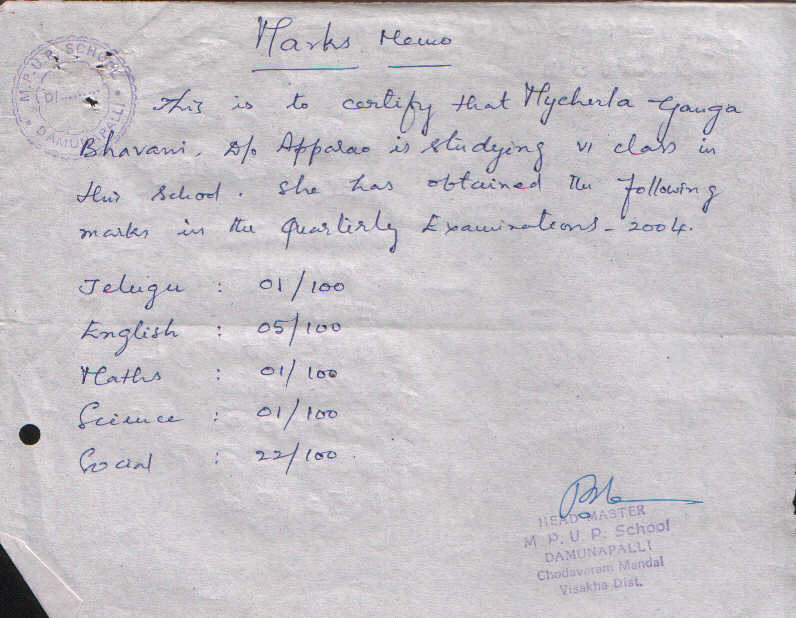 Marks Memo
M.P.U.P. SCHOOL
Dt..........
DAMUNAPALLI
This is to certify that Mycherla Ganga
Bhavani. D/o Apparao is studying VI class in
this school. She has obtained the following
marks in the Quarterly Examinations - 2004.
Telugu : 01/100
English : 05/100
Maths : 01/100
Science : 01/100
Social : 22/100.
HEAD MASTER
M. P. U. P. School
DAMUNAPALLI
Chodavaram Mandal
Visakha Dist.